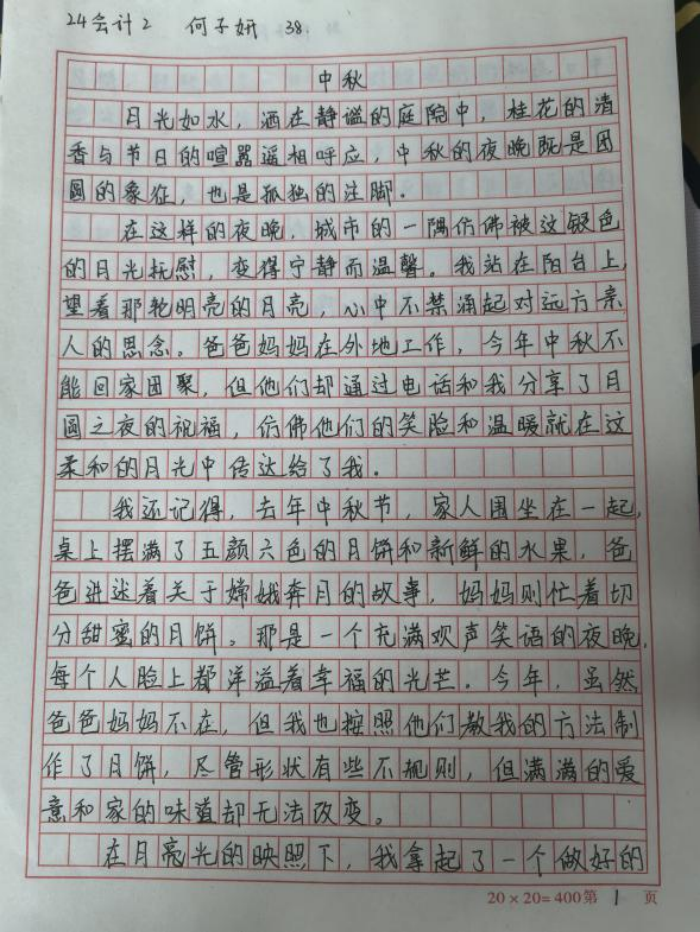 24会计2 何子妍 38.
中秋
月光如水，洒在静谧的庭院中，桂花的清
香与节日的喧嚣遥相呼应，中秋的夜晚既是团
圆的象征，也是孤独的注脚.
在这样的夜晚，城市的一隅仿佛被这银色
的月光抚慰，变得宁静而温馨。我站在阳台上，
望着那轮明亮的月亮，心中不禁涌起对远方亲
人的思念。爸爸妈妈在外地工作，今年中秋不
能回家团聚，但他们却通过电话和我分享了月
圆之夜的祝福，仿佛他们的笑脸和温暖就在这
柔和的月光中传达给了我.
我还记得，去年中秋节，家人围坐在一起，
桌上摆满了五颜六色的月饼和新鲜的水果，爸
爸讲述着关于嫦娥奔月的故事，妈妈则忙着切
分甜蜜的月饼。那是一个充满欢声笑语的夜晚，
每个人脸上都洋溢着幸福的光芒.今年，虽然
爸爸妈妈不在，但我也按照他们教我的方法制
作了月饼，尽管形状有些不规则，但满满的爱
意和家的味道却无法改变。
在月亮光的映照下，我拿起了一个做好的
20×20=400第 1 页